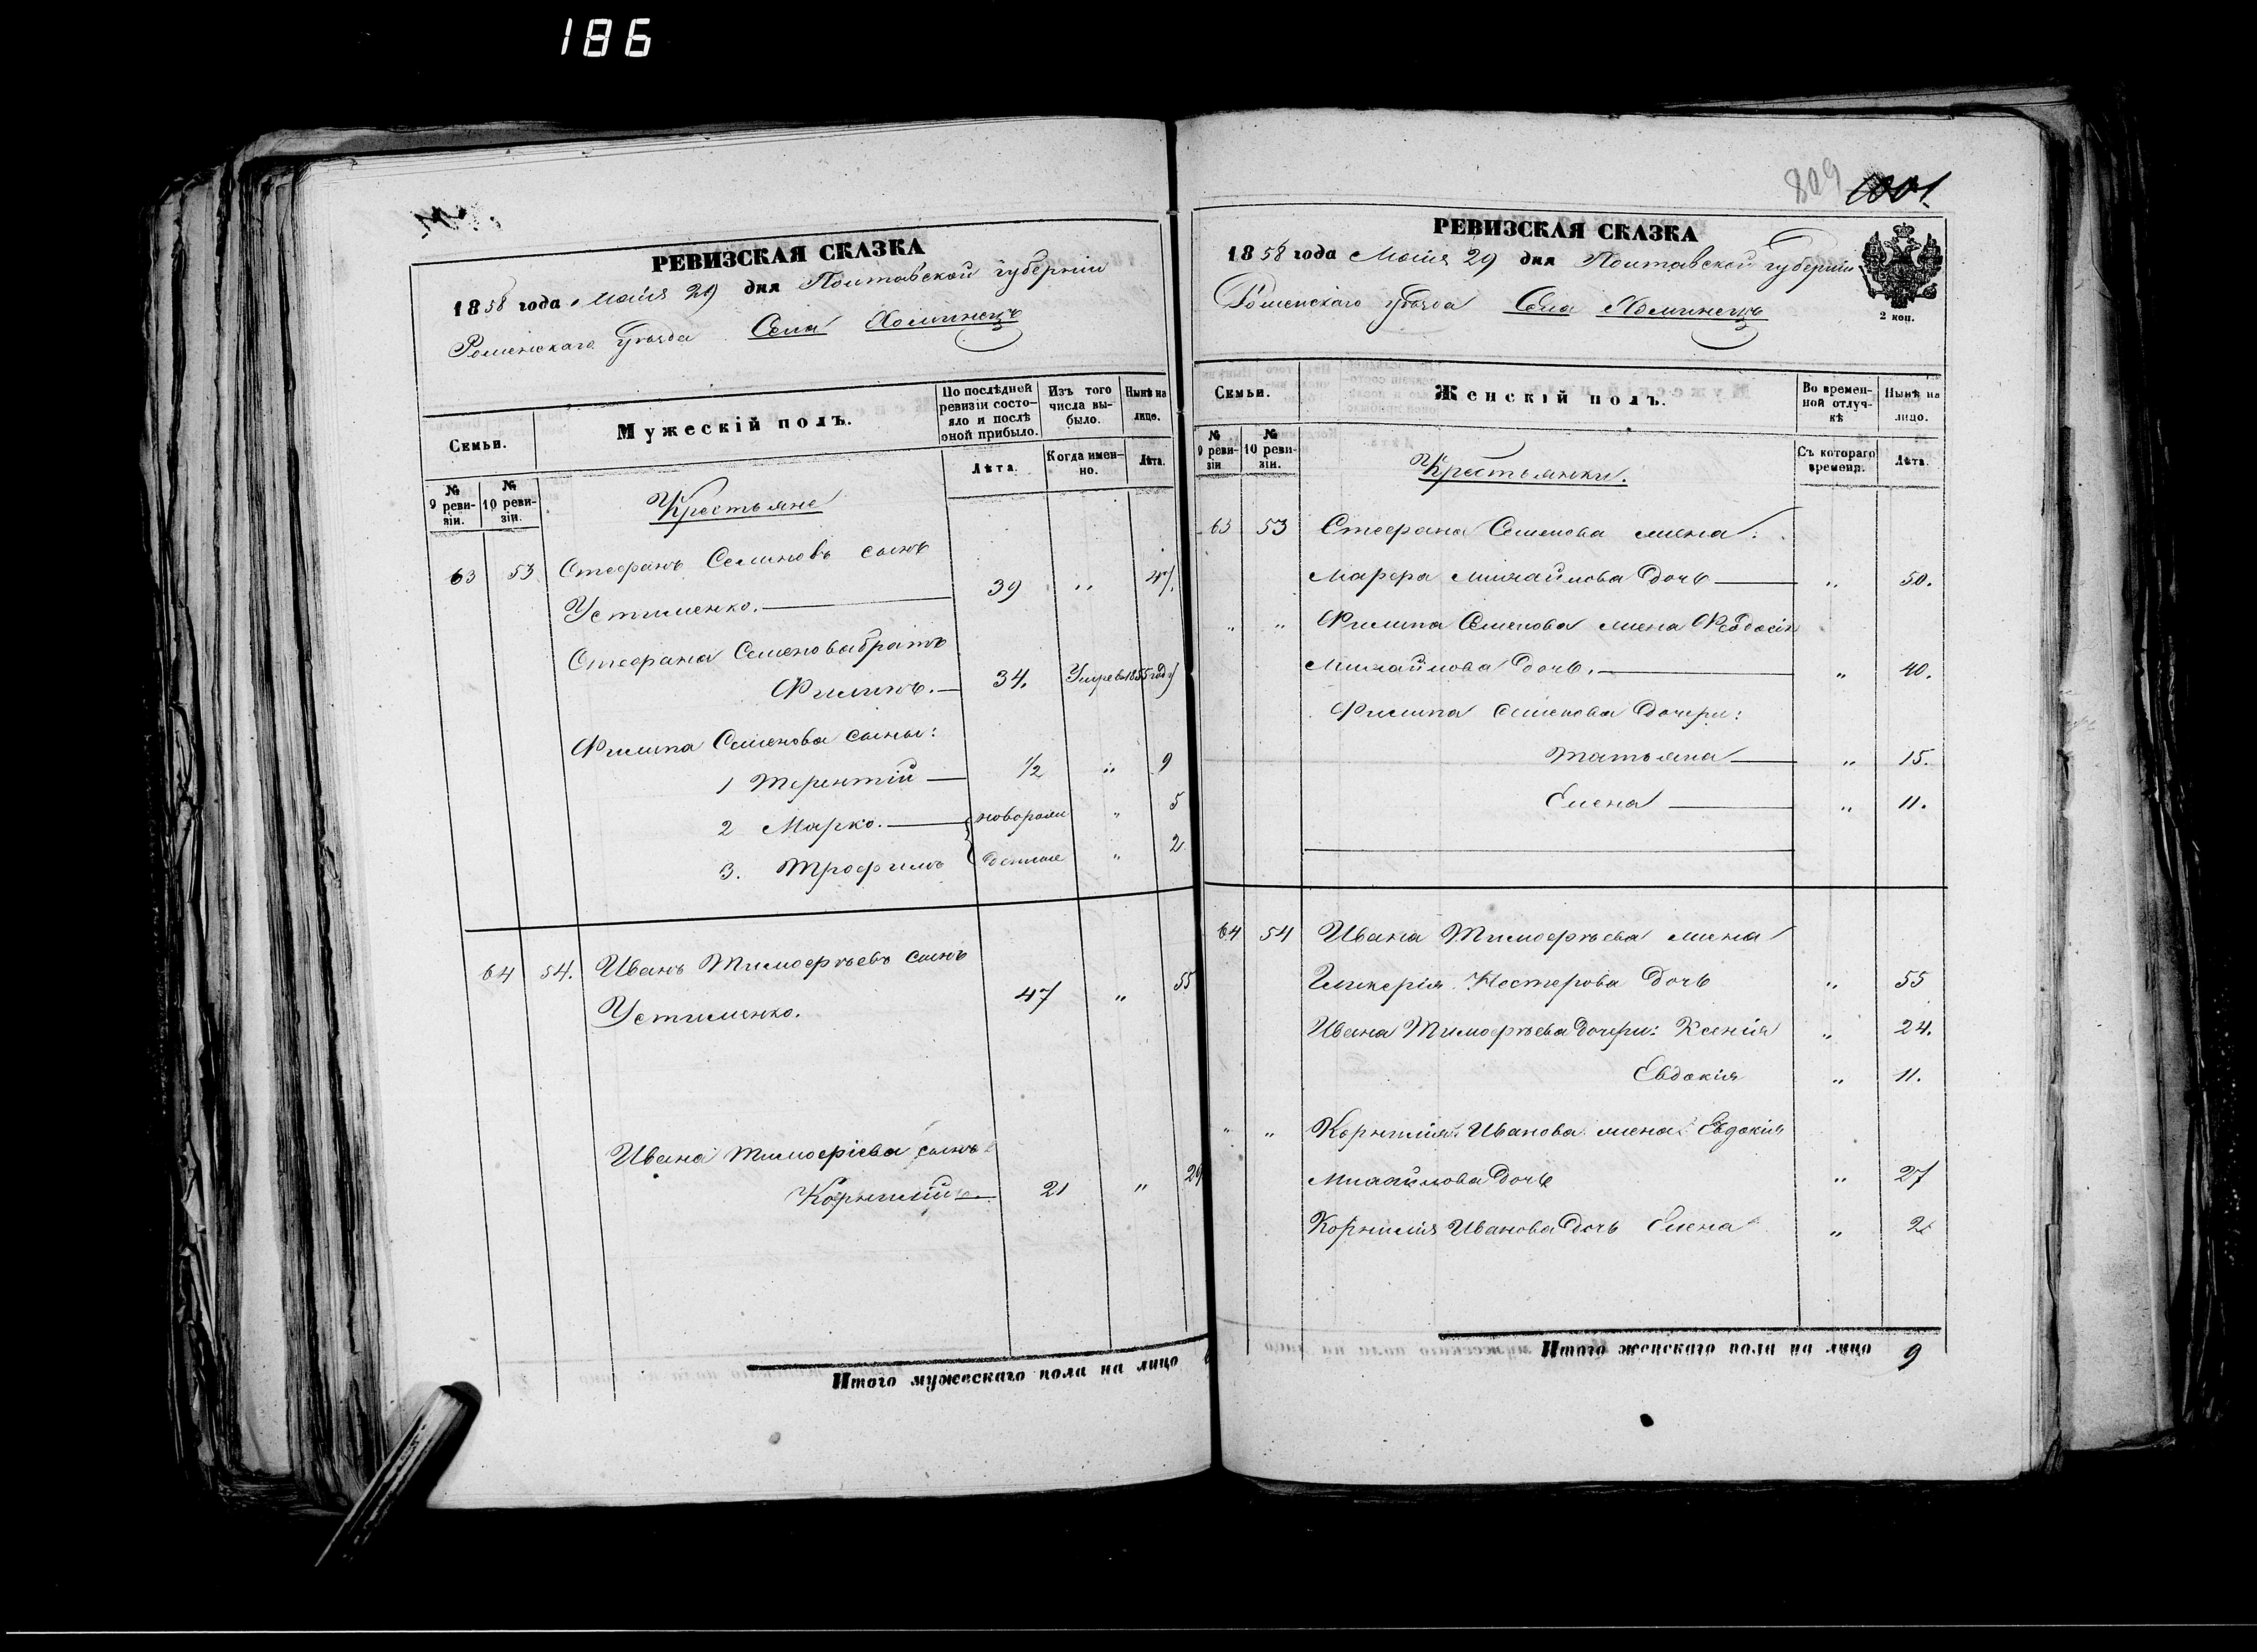 186
РЕВИЗСКАЯ СКАЗКА
1858 года Маія 29 дня Полтавской губерніи
Роменскаго уѣзда Села Хоминецъ
Семьи.
Мужескій полъ.
По послѣдней ревизіи состояло и послѣ оной прибыло.
Изъ того числа выбыло.
Нынѣ на лицо.
№ 9 ревизіи.
№ 10 ревизіи.
Лѣта.
Когда именно.
Лѣта.
Крестьяне
63 53 Стефанъ Семеновъ сынъ
Устименко. 39 " 47.
Стефана Семенова братъ
Филипъ. 34. Умре въ 1855 году
Филипа Семенова сыны:
1 Терентій 1/2 " 9
2 Марко. новорож " 5
3. Трофимъ денные " 2
64 54. Иванъ Тимофѣевъ сынъ
Устименко. 47 " 55
Ивана Тимофіева сынъ
Корнилій 21 " 29
Итого мужескаго пола на лицо
809 1001.
РЕВИЗСКАЯ СКАЗКА
1858 года Маія 29 дня Полтавской губерніи
Роменскаго уѣзда Села Хоминецъ
2 коп.
Семьи.
Женскій полъ.
Во временной отлучкѣ
Нынѣ на лицо.
№ 9 ревизіи
№ 10 ревизіи.
Съ котораго времени.
Лѣта.
Крестьянки.
63 53 Стефана Семенова жена:
Марфа Михайлова дочь " 50.
" " Филипа Семенова жена Феодосія
Михайлова дочь. " 40.
Филипа Семенова дочери:
Татьяна " 15.
Елена " 11.
64 54 Ивана Тимофѣева жена
Гликерія Нестерова дочь " 55
Ивана Тимофѣева дочери: Ксенія " 24.
Евдокія " 11.
" " Корнилія Иванова жена Евдокія
Михайлова дочь " 27
Корнилія Иванова дочь Елена " 2
Итого женскаго пола на лицо 9